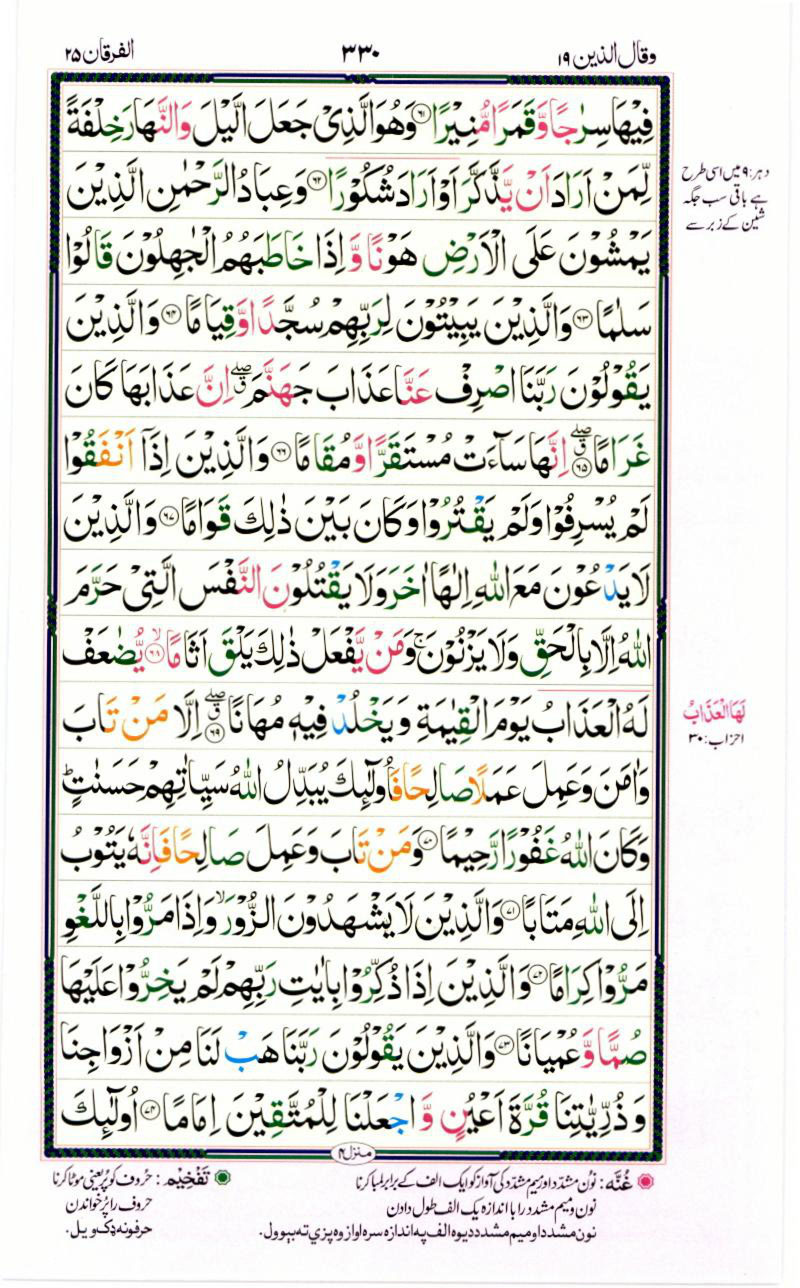 وقال الذين ۱۹
۳۳۰
الفرقان ۲۵
فِيْهَا سِرٰجًا وَّقَمَرًا مُّنِيْرًا ﴿۶۱﴾ وَهُوَ الَّذِىْ جَعَلَ الَّيْلَ وَالنَّهَارَ خِلْفَةً
لِّمَنْ اَرَادَ اَنْ يَّذَّكَّرَ اَوْ اَرَادَ شُكُوْرًا ﴿۶۲﴾ وَعِبَادُ الرَّحْمٰنِ الَّذِيْنَ
يَمْشُوْنَ عَلَى الْاَرْضِ هَوْنًا وَّاِذَا خَاطَبَهُمُ الْجٰهِلُوْنَ قَالُوْا
سَلٰمًا ﴿۶۳﴾ وَالَّذِيْنَ يَبِيْتُوْنَ لِرَبِّهِمْ سُجَّدًا وَّقِيَامًا ﴿۶۴﴾ وَالَّذِيْنَ
يَقُوْلُوْنَ رَبَّنَا اصْرِفْ عَنَّا عَذَابَ جَهَنَّمَ ۖق اِنَّ عَذَابَهَا كَانَ
غَرَامًا ﴿۶۵﴾ ۖق اِنَّهَا سَآءَتْ مُسْتَقَرًّا وَّمُقَامًا ﴿۶۶﴾ وَالَّذِيْنَ اِذَآ اَنْفَقُوْا
لَمْ يُسْرِفُوْا وَلَمْ يَقْتُرُوْا وَكَانَ بَيْنَ ذٰلِكَ قَوَامًا ﴿۶۷﴾ وَالَّذِيْنَ
لَا يَدْعُوْنَ مَعَ اللّٰهِ اِلٰهًا اٰخَرَ وَلَا يَقْتُلُوْنَ النَّفْسَ الَّتِىْ حَرَّمَ
اللّٰهُ اِلَّا بِالْحَقِّ وَلَا يَزْنُوْنَ ۚ وَمَنْ يَّفْعَلْ ذٰلِكَ يَلْقَ اَثَامًا ﴿۶۸﴾ۙ يُّضٰعَفْ
لَهُ الْعَذَابُ يَوْمَ الْقِيٰمَةِ وَيَخْلُدْ فِيْهٖ مُهَانًا ﴿۶۹﴾ ۖق اِلَّا مَنْ تَابَ
وَاٰمَنَ وَعَمِلَ عَمَلًا صَالِحًا فَاُولٰٓئِكَ يُبَدِّلُ اللّٰهُ سَيِّاٰتِهِمْ حَسَنٰتٍ ؕ
وَكَانَ اللّٰهُ غَفُوْرًا رَّحِيْمًا ﴿۷۰﴾ وَمَنْ تَابَ وَعَمِلَ صَالِحًا فَاِنَّهٗ يَتُوْبُ
اِلَى اللّٰهِ مَتَابًا ﴿۷۱﴾ وَالَّذِيْنَ لَا يَشْهَدُوْنَ الزُّوْرَ ۙ وَاِذَا مَرُّوْا بِاللَّغْوِ
مَرُّوْا كِرَامًا ﴿۷۲﴾ وَالَّذِيْنَ اِذَا ذُكِّرُوْا بِاٰيٰتِ رَبِّهِمْ لَمْ يَخِرُّوْا عَلَيْهَا
صُمًّا وَّعُمْيَانًا ﴿۷۳﴾ وَالَّذِيْنَ يَقُوْلُوْنَ رَبَّنَا هَبْ لَنَا مِنْ اَزْوَاجِنَا
وَذُرِّيّٰتِنَا قُرَّةَ اَعْيُنٍ وَّاجْعَلْنَا لِلْمُتَّقِيْنَ اِمَامًا ﴿۷۴﴾ اُولٰٓئِكَ
دہر:۹ میں اسی طرح
ہے باقی سب جگہ
شین کے زبر سے
لَهَا الْعَذَابُ
احزاب:۳۰
منزل ۴
غُنَّه: نون مشدّد اور میم مشدّد کی آواز کو ایک الف کے برابر لمبا کرنا
نون و میم مشدد را با اندازه یک الف طول دادن
نون مشدد او میم مشدد دیوه الف په اندازه سره اواز وه پزې ته بېوول.
تَفْخِيْم: حروف کو پُر یعنی موٹا کرنا
حروف را پُر خواندن
حرفونه ډک ویل.